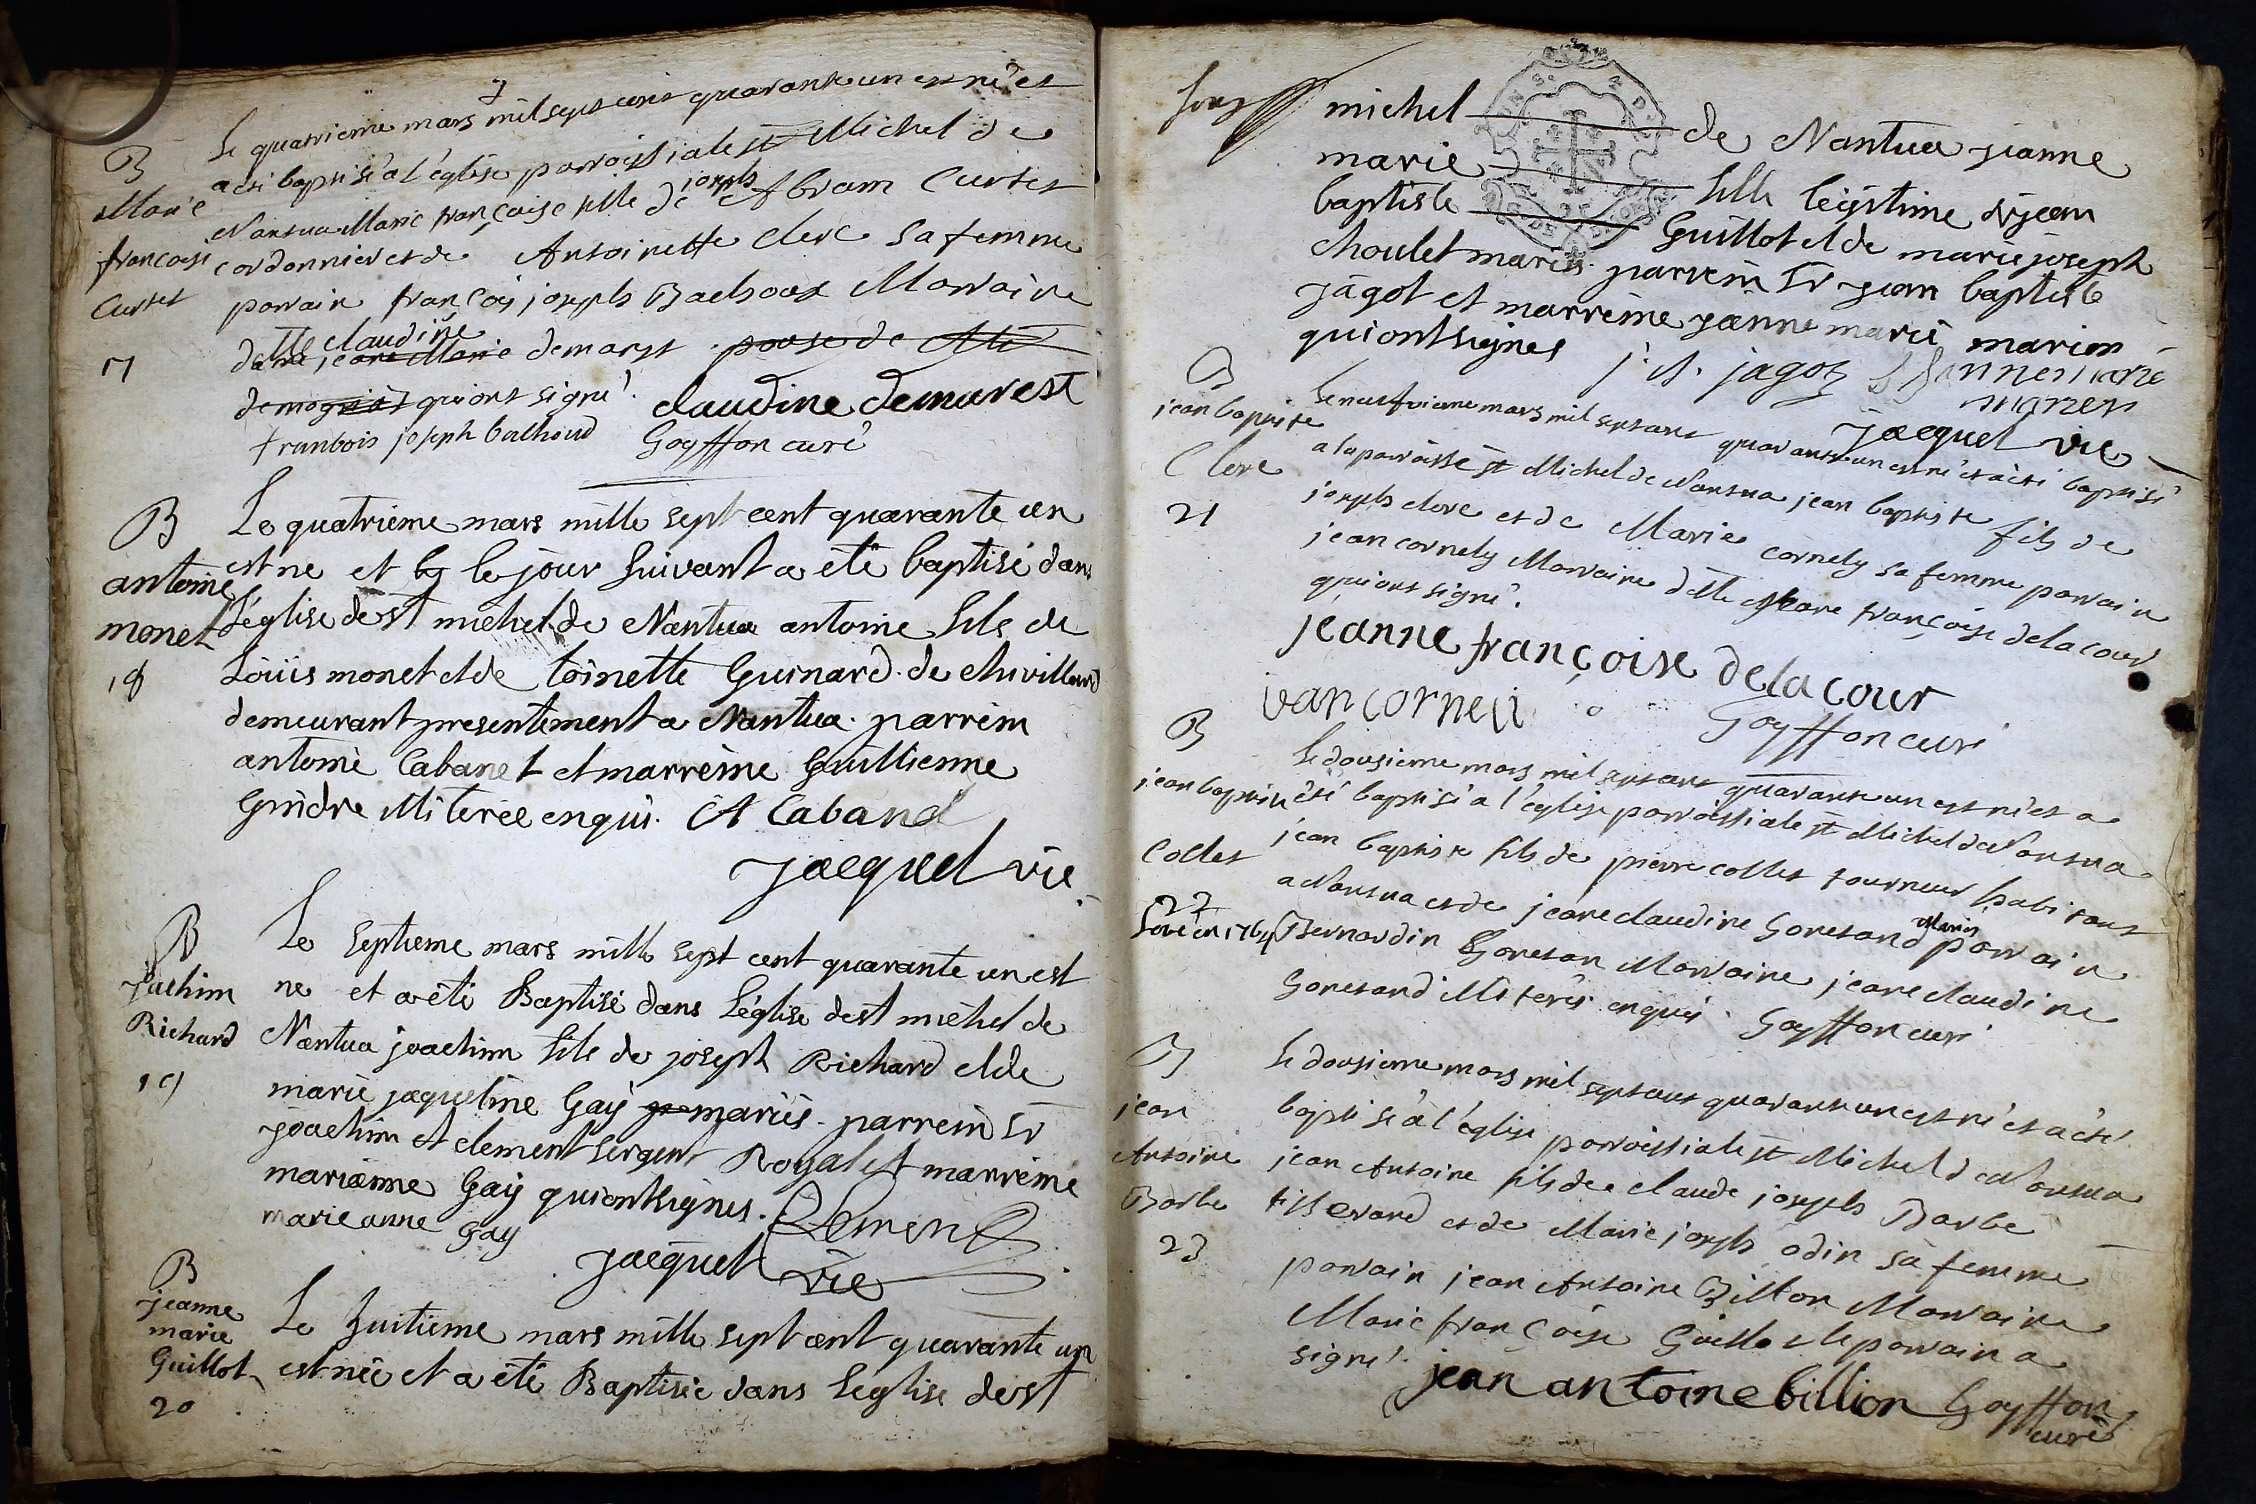 7
B
Marie
francoise
Curtet
17
Le quatrieme mars mil sept cent quarante un est né et
a été baptisé a l'église parroissiale st Michel de
Nantua Marie françoise fille de joseph Abram Curtet
cordonnier et de Antoinette Clerc sa femme
parrain françois joseph Bachoux Marraine
dlle claudine
dame jeane Marie demarest pouse de
qui ont signé.
claudine demarest
franbois joseph balhoud Goyffon curé
B
antoine
monet
18
Le quatrieme mars mille sept cent quarante un
est ne et le jour suivant a été baptisé dans
l'église de st michel de Nantua antoine fils de
Loüis monet et de toinette Guinard de chivilland
demeurant presentement a Nantua. parrein
antoine Cabanet et marreine Guillienne
Gindre illiterée enquis. A Caband
jacquet vic
B
joachim
Richard
19
Le septieme mars mille sept cent quarante un est
ne et a été Baptisé dans L'église de st michel de
Nantua joachim fils de joseph Richard et de
marie jaqueline Gay mariés. parrein sr
joachim et clement sergent Royal et marreine
marianne Gay qui ont signes. Clement
marie anne gay
jacquet vic
B
jeanne
marie
Guillot
20
Le huitieme mars mille sept cent quarante un
est née et a été Baptisée dans L'église de st
michel de Nantua jeanne
marie fille légitime de sr jean
baptiste Guillot et de marie joseph
choulet mariés. parrein sr jean baptiste
jagot et marreine jeanne marie marion
qui ont signes j. b. jagot
jacquet vic
B
jean baptiste
Clerc
21
Le neufvieme mars mil sept cent quarante un est né et a été baptisé
a la parroisse st Michel de Nantua jean baptiste fils de
joseph clerc et de Marie cornely sa femme parrain
jean cornely Marraine dlle jeane françoise delacour
qui ont signé.
jeanne françoise delacour
Goyffon curé
B
jean baptiste
Collet
22
Le dousieme mars mil sept cent quarante un est né et a
été baptisé a l'église parroissiale st Michel de Nantua
jean baptiste fils de pierre collet tourneur habitant
a Nantua et de jeane claudine Goretand parrain
Bernardin Goretan Marraine jeane claudine
Goretand illiterés enquis. Goyffon curé
B
jean
Antoine
Barbe
23
Le dousieme mars mil sept cent quarante un est né et a été
baptisé a l'église parroissiale st Michel de Nantua
jean Antoine fils de claude joseph Barbe
tisserand et de Marie joseph odin sa femme
parrain jean Antoine Billon Marraine
Marie françoise Guillot le parrain a
signé.
jean antoine billion Goyffon
curé